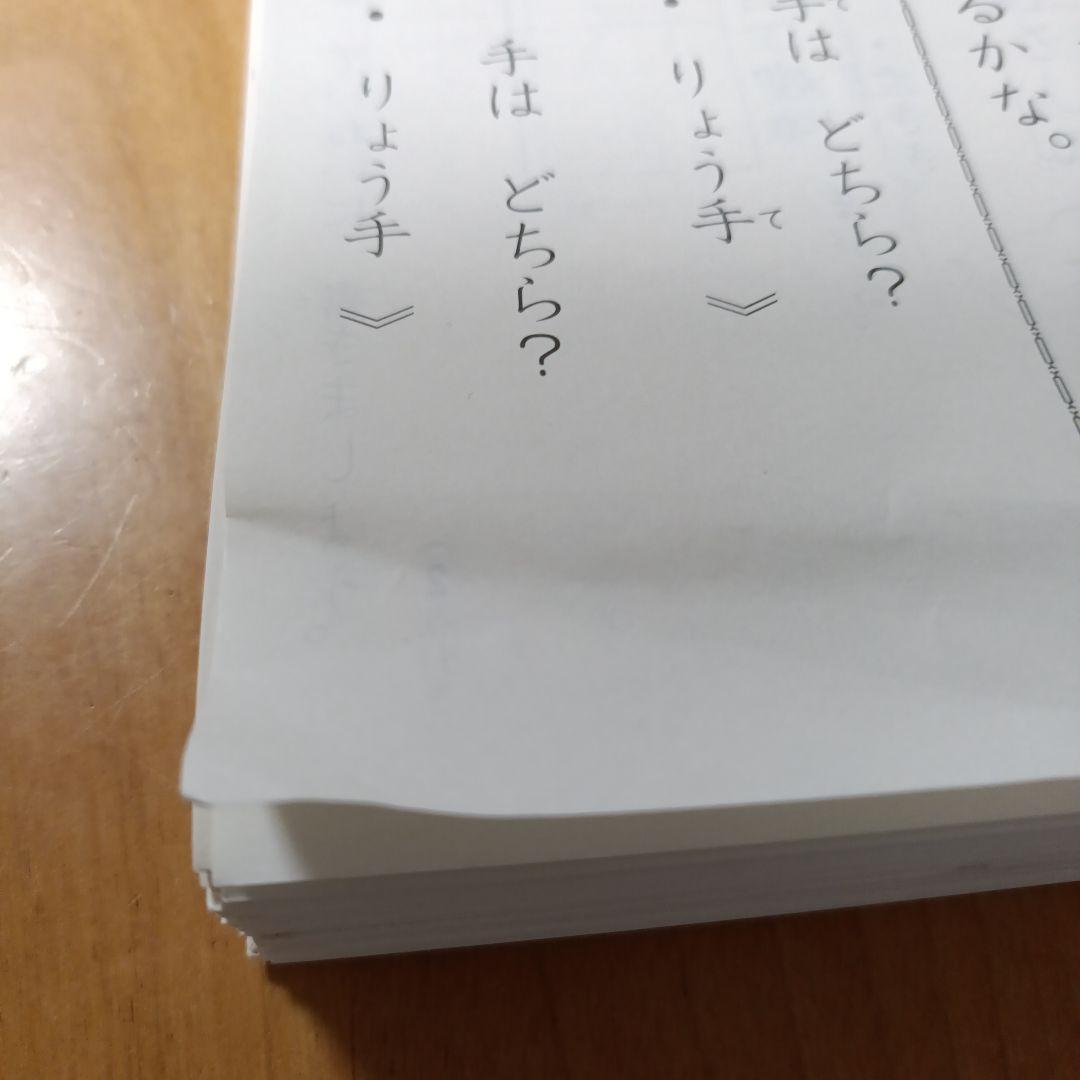 るかな。
手は どちら?
・りょう手》
て
手は どちら?
・りょう手》